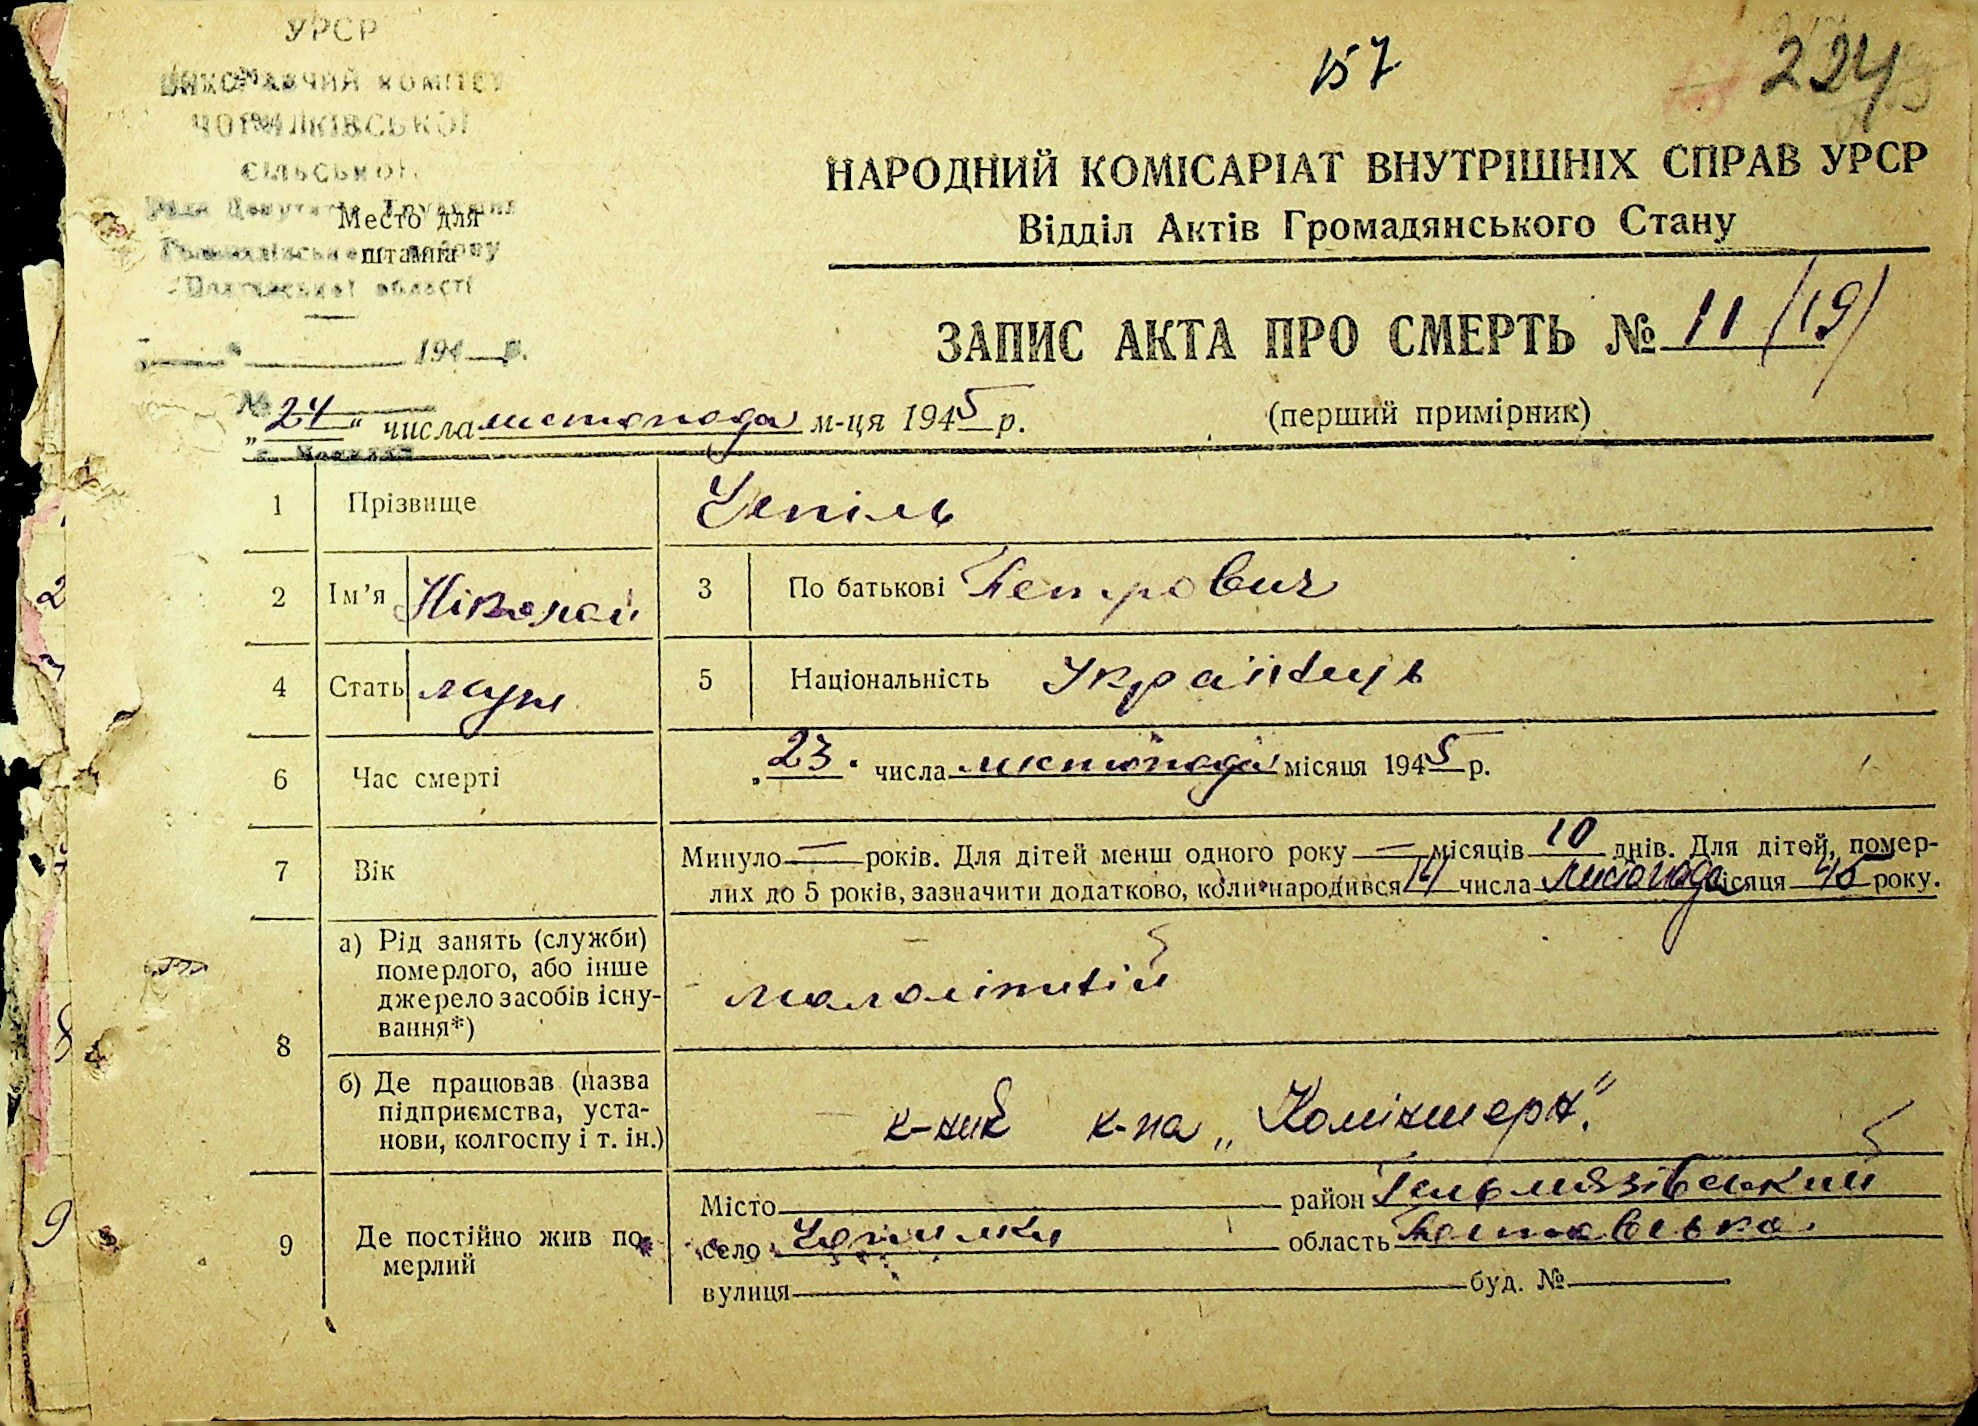 УРСР
ВИКОНАВЧИЙ КОМІТЕТ
СІЛЬСЬКОЇ
Ради Депутатів Трудящих
Полтавської області
194 р.
№
Место для
штампа
157
224
НАРОДНИЙ КОМІСАРІАТ ВНУТРІШНІХ СПРАВ УРСР
Відділ Актів Громадянського Стану
ЗАПИС АКТА ПРО СМЕРТЬ № 11 /19/
„24“ числа листопада м-ця 1945 р.
(перший примірник)
1 Прізвище
2 Ім’я Ніколай 3 По батькові Петрович
4 Стать муж 5 Національність Українець
6 Час смерті „23“ числа листопада місяця 1945 р.
7 Вік Минуло — років. Для дітей менш одного року — місяців 10 днів. Для дітей, помер-
лих до 5 років, зазначити додатково, коли народився 14 числа листопада місяця 45 року.
8 а) Рід занять (служби)
померлого, або інше
джерело засобів існу-
вання*)
малолітній
б) Де працював (назва
підприємства, уста-
нови, колгоспу і т. ін.)
к-ник к-па „Комінтерн“
9 Де постійно жив по-
мерлий
Місто район Гельмязівський
село область Полтавська
вулиця буд. №
2
8
9